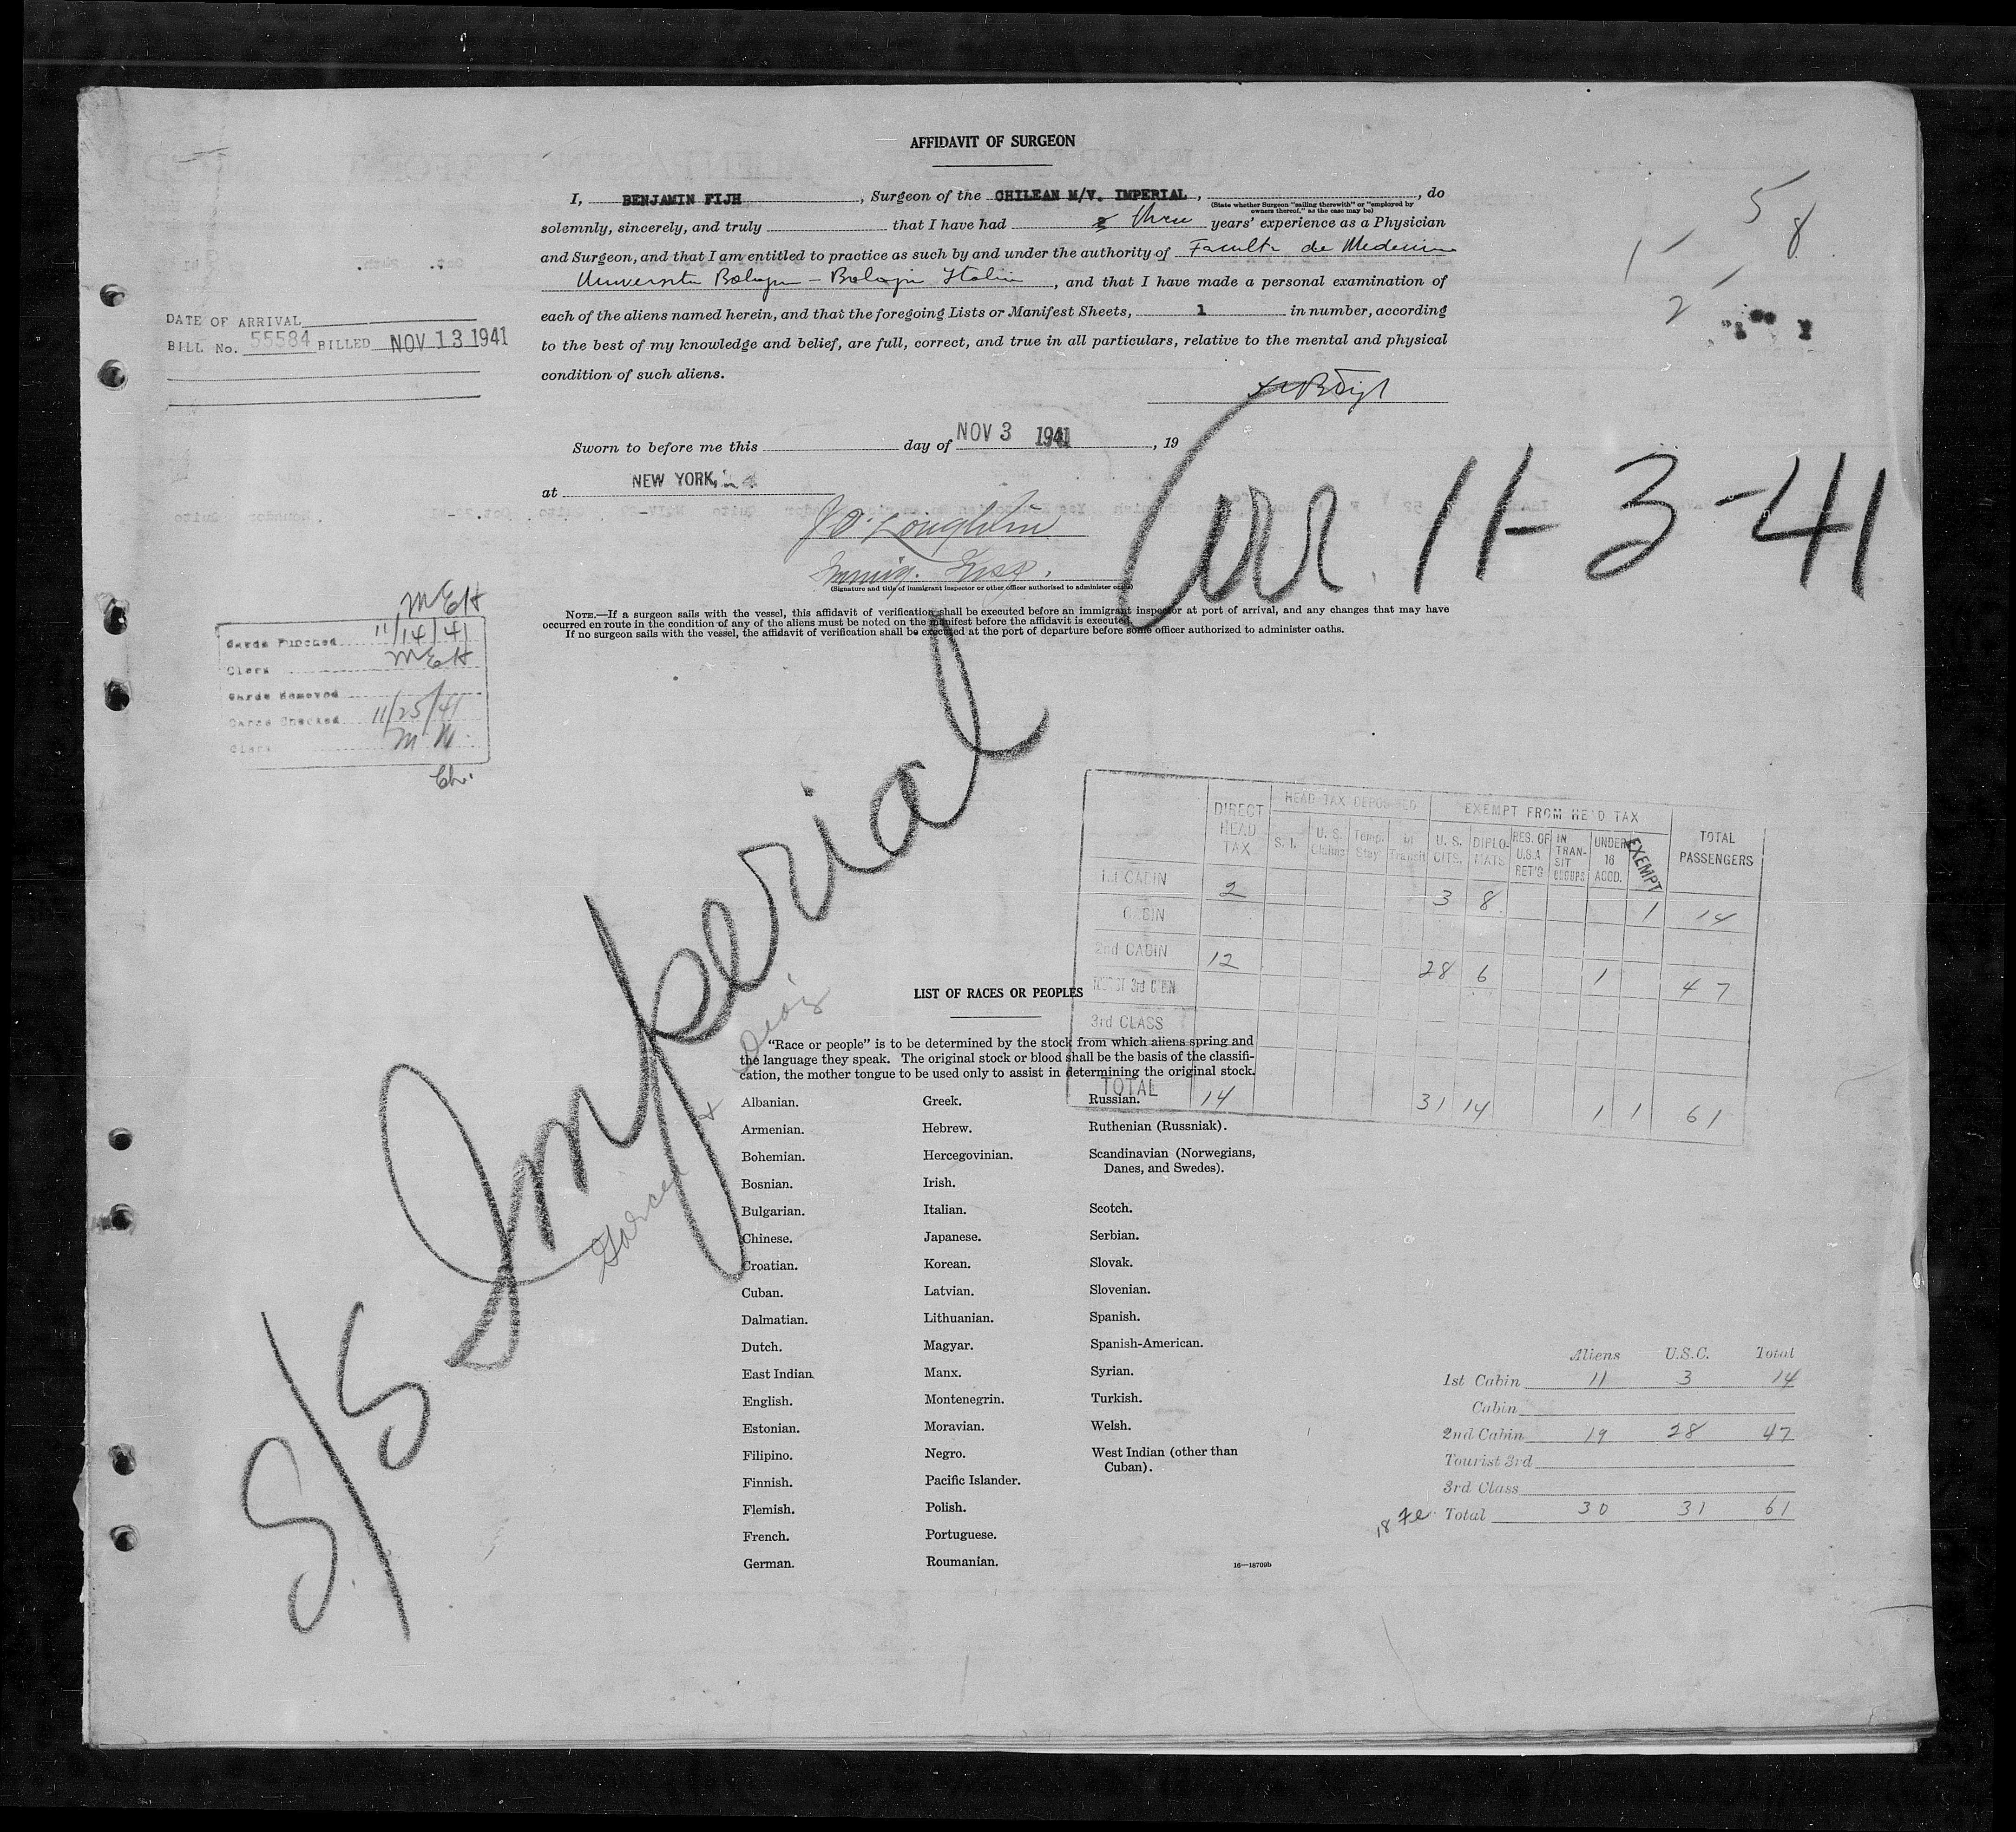 AFFIDAVIT OF SURGEON
I, BENJAMIN FIJH, Surgeon of the CHILEAN M/V. IMPERIAL, , do
(State whether Surgeon "sailing therewith" or "employed by
owners thereof," as the case may be)
solemnly, sincerely, and truly that I have had three years' experience as a Physician
and Surgeon, and that I am entitled to practice as such by and under the authority of
, and that I have made a personal examination of
each of the aliens named herein, and that the foregoing Lists or Manifest Sheets, 1 in number, according
to the best of my knowledge and belief, are full, correct, and true in all particulars, relative to the mental and physical
condition of such aliens.
Sworn to before me this day of NOV 3 1941, 19
at NEW YORK,
J O'Loughlin
Immig. Insp.
(Signature and title of immigrant inspector or other officer authorized to administer oaths)
NOTE.—If a surgeon sails with the vessel, this affidavit of verification shall be executed before an immigrant inspector at port of arrival, and any changes that may have
occurred en route in the condition of any of the aliens must be noted on the manifest before the affidavit is executed.
If no surgeon sails with the vessel, the affidavit of verification shall be executed at the port of departure before some officer authorized to administer oaths.
5
8
1
2
DATE OF ARRIVAL
BILL No. 55584 BILLED NOV 13 1941
Arr. 11-3-41
MEH
Cards Punched 11/14/41
Clerk MEH
Cards Removed
Cards Checked 11/25/41
Clerk M N.
Ch.
S/S Imperial
Garcia & Diaz
DIRECT HEAD TAX
HEAD TAX DEPOSITED
S. I.
U. S. Claims
Temp. Stay
In Transit
EXEMPT FROM HEAD TAX
U. S. CITS.
DIPLO-MATS
RES. OF U.S.A. RET'G
IN TRAN-SIT GROUPS
UNDER 16 ACCD.
EXEMPT
TOTAL PASSENGERS
1st CABIN 2 3 8 1 14
CABIN
2nd CABIN 12 28 6 1 47
TOURIST 3rd CABIN
3rd CLASS
TOTAL 14 31 14 1 1 61
LIST OF RACES OR PEOPLES
"Race or people" is to be determined by the stock from which aliens spring and
the language they speak. The original stock or blood shall be the basis of the classifi-
cation, the mother tongue to be used only to assist in determining the original stock.
Albanian.
Armenian.
Bohemian.
Bosnian.
Bulgarian.
Chinese.
Croatian.
Cuban.
Dalmatian.
Dutch.
East Indian
English.
Estonian.
Filipino.
Finnish.
Flemish.
French.
German.
Greek.
Hebrew.
Hercegovinian.
Irish.
Italian.
Japanese.
Korean.
Latvian.
Lithuanian.
Magyar.
Manx.
Montenegrin.
Moravian.
Negro.
Pacific Islander.
Polish.
Portuguese.
Roumanian.
Russian.
Ruthenian (Russniak).
Scandinavian (Norwegians,
Danes, and Swedes).
Scotch.
Serbian.
Slovak.
Slovenian.
Spanish.
Spanish-American.
Syrian.
Turkish.
Welsh.
West Indian (other than
Cuban).
16—18709b
Aliens U.S.C. Total
1st Cabin 11 3 14
Cabin
2nd Cabin 19 28 47
Tourist 3rd
3rd Class
Total 30 31 61